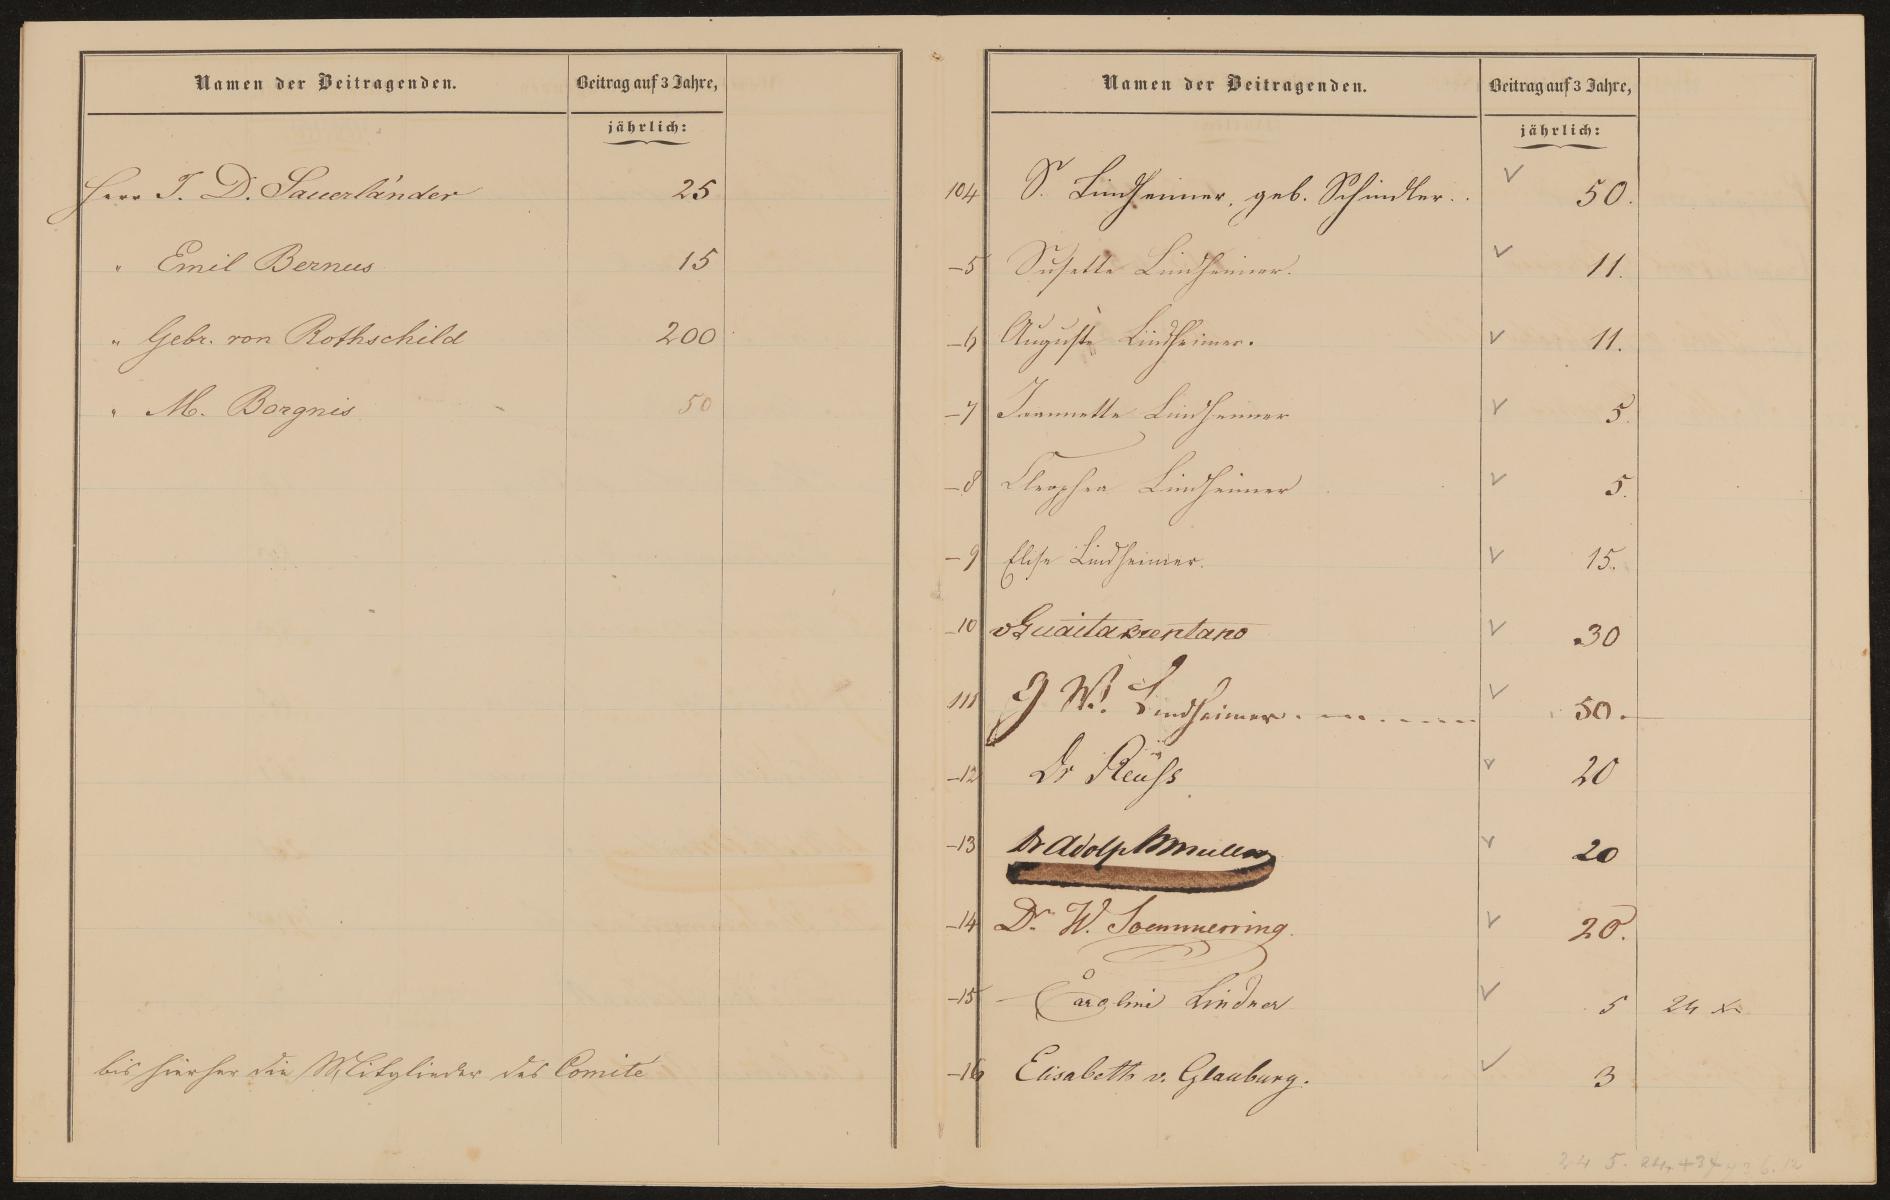 Namen der Beitragenden.
Beitrag auf 3 Jahre,
jährlich:
Herr J. D. Sauerländer 25
" Emil Bernus 15
" Gebr. von Rothschild 200
" M. Borgnis 50
bis hierher die Mitglieder des Comité
Namen der Beitragenden.
Beitrag auf 3 Jahre,
jährlich:
104 S. Lindheimer, geb. Schindler. 50.
-5 Susette Lindheimer. 11.
-6 Auguste Lindheimer. 11.
-7 Jeannette Lindheimer 5.
-8 Cleophea Lindheimer 5.
-9 Elise Lindheimer. 15.
-10 vGuaita Brentano 30
111 G W. Lindheimer. 50.
-12 Dr Reuss 20
-13 Dr Adolph Müller 20
-14 Dr. W. Soemmerring. 20.
-15 Caroline Lindner 5 24 x
-16 Elisabeth v. Glauburg. 3
245. 24